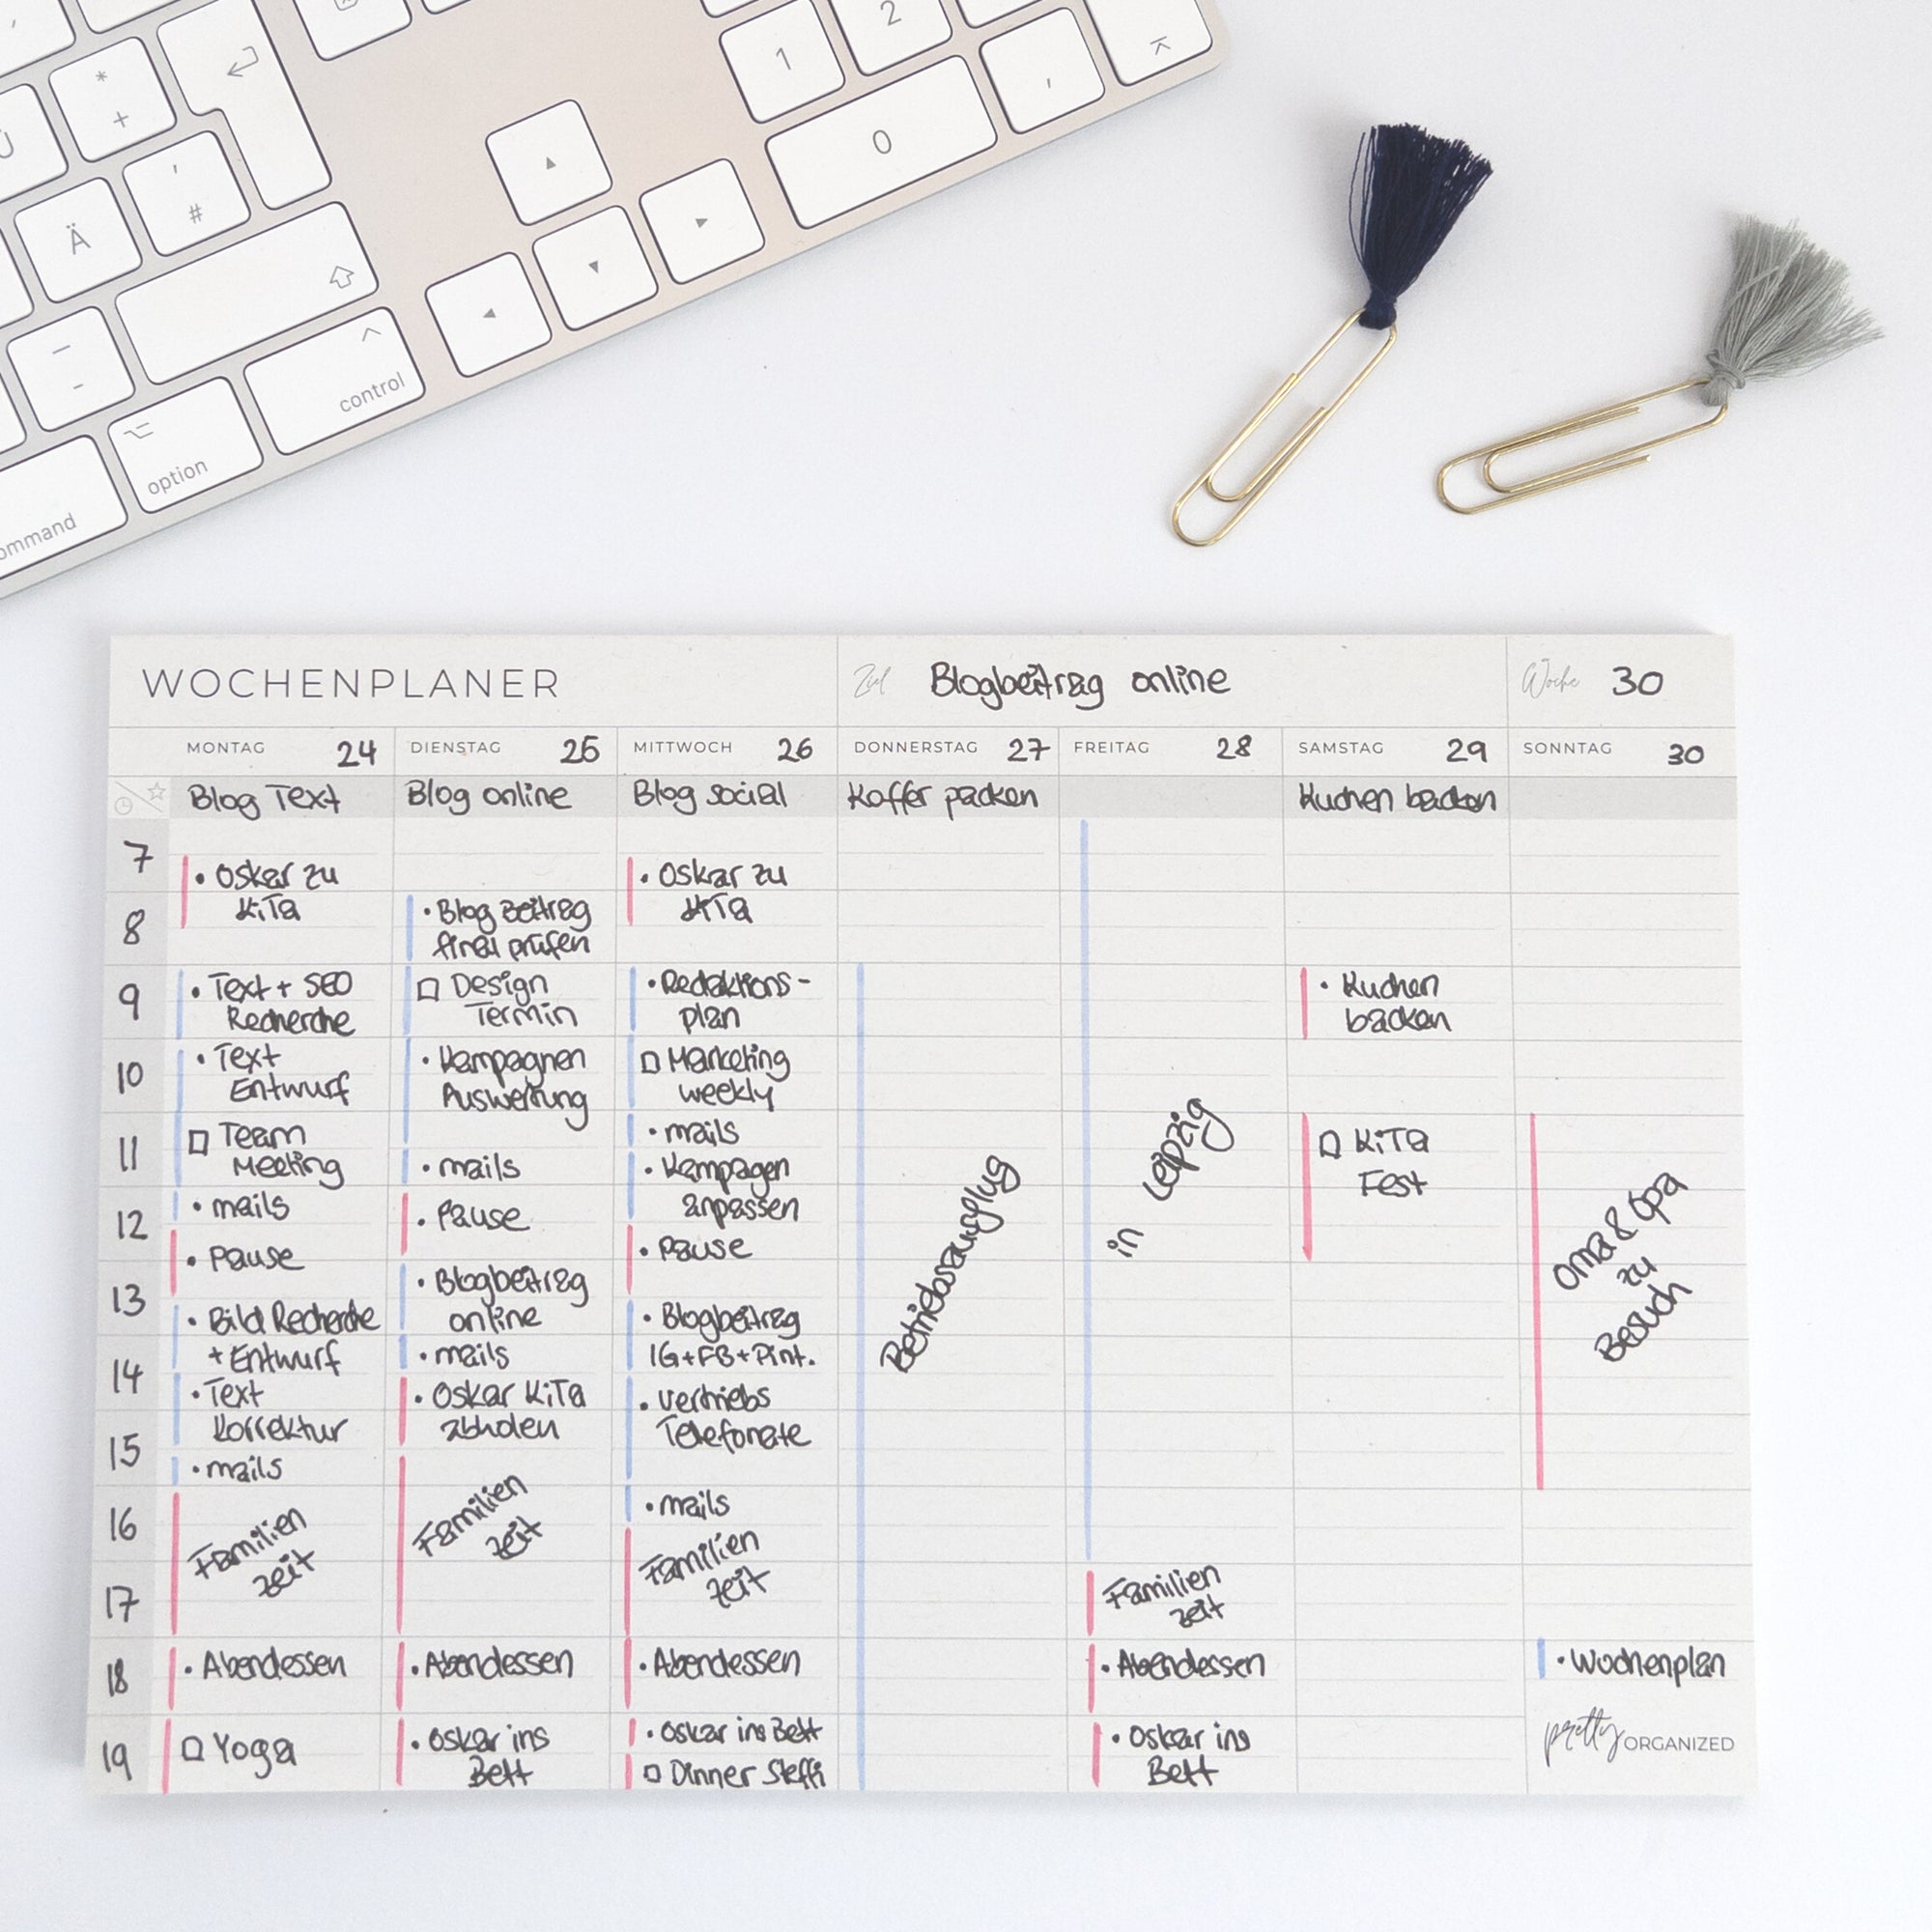 *
+
Ü
'
#
Ä
-
1
2
0
,
control
option
ommand
WOCHENPLANER
Ziel Blogbeitrag online
Woche 30
MONTAG 24
DIENSTAG 25
MITTWOCH 26
DONNERSTAG 27
FREITAG 28
SAMSTAG 29
SONNTAG 30
Blog Text
Blog online
Blog social
Koffer packen
Kuchen backen
7
8
9
10
11
12
13
14
15
16
17
18
19
• Oskar zu
KiTa
• Text + SEO
Recherche
• Text
Entwurf
Team
Meeting
• mails
• Pause
• Bild Recherche
+ Entwurf
• Text
Korrektur
• mails
Familien
zeit
• Abendessen
Yoga
• Blog Beitrag
final prüfen
Design
Termin
• Kampagnen
Auswertung
• mails
• Pause
• Blogbeitrag
online
• mails
• Oskar KiTa
abholen
Familien
zeit
• Abendessen
• Oskar ins
Bett
• Oskar zu
KiTa
• Redaktions-
plan
Marketing
weekly
• mails
• Kampagen
anpassen
• Pause
• Blogbeitrag
IG+FB+Pint.
• Vertriebs
Telefonate
• mails
Familien
zeit
• Abendessen
• Oskar ins Bett
Dinner Steffi
Betriebsausflug
in Leipzig
Familien
zeit
• Abendessen
• Oskar ins
Bett
• Kuchen
backen
KiTa
Fest
Oma & Opa
zu
Besuch
• Wochenplan
pretty ORGANIZED